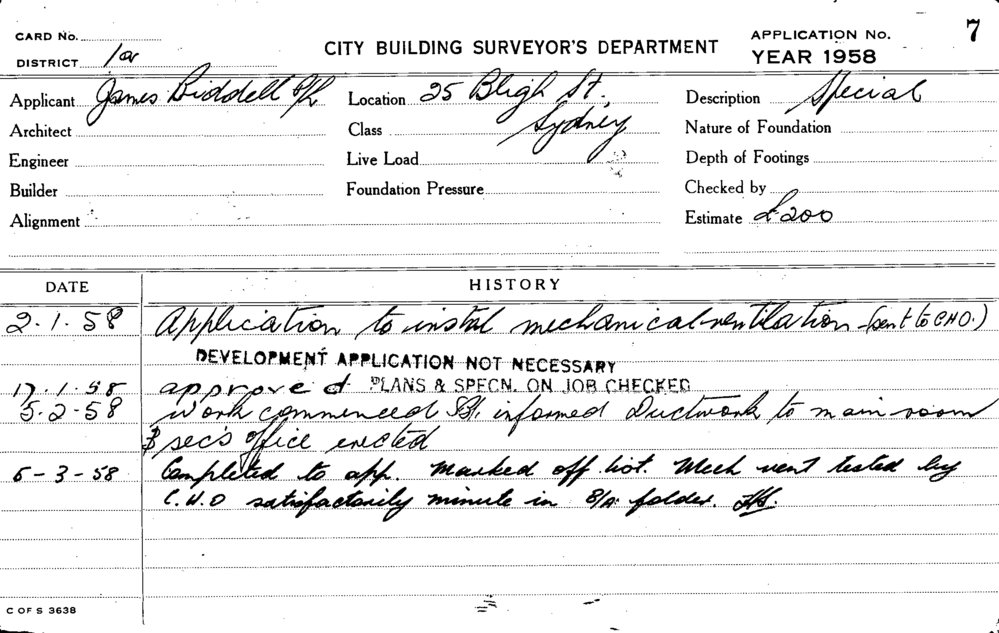 CARD No.
DISTRICT 1a
CITY BUILDING SURVEYOR'S DEPARTMENT
APPLICATION No. 7
YEAR 1958
Applicant James Biddell P/L Location 25 Bligh St. Sydney Description Special
Architect Class Nature of Foundation
Engineer Live Load Depth of Footings
Builder Foundation Pressure Checked by
Alignment Estimate £200
DATE HISTORY
2.1.58 Application to instal mechanical ventilation (sent to CHO.)
DEVELOPMENT APPLICATION NOT NECESSARY
17.1.58 approved PLANS & SPECN. ON JOB CHECKED
5-2-58 Work commenced informed Ductwork to main room
& sec's office erected
5-3-58 Completed to app. Marked off list. Mech vent tested by
C.H.O satisfactorily minute in folder.
C OF S 3638